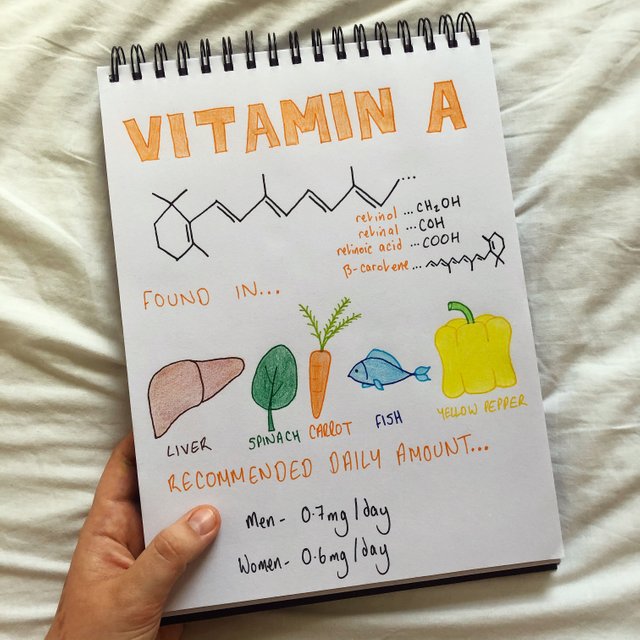 VITAMIN A
retinol ...CH₂OH
retinal ...COH
retinoic acid ...COOH
β-carotene...
FOUND IN...
LIVER
SPINACH
CARROT
FISH
YELLOW PEPPER
RECOMMENDED DAILY AMOUNT...
Men- 0.7mg/day
Women- 0.6mg/day